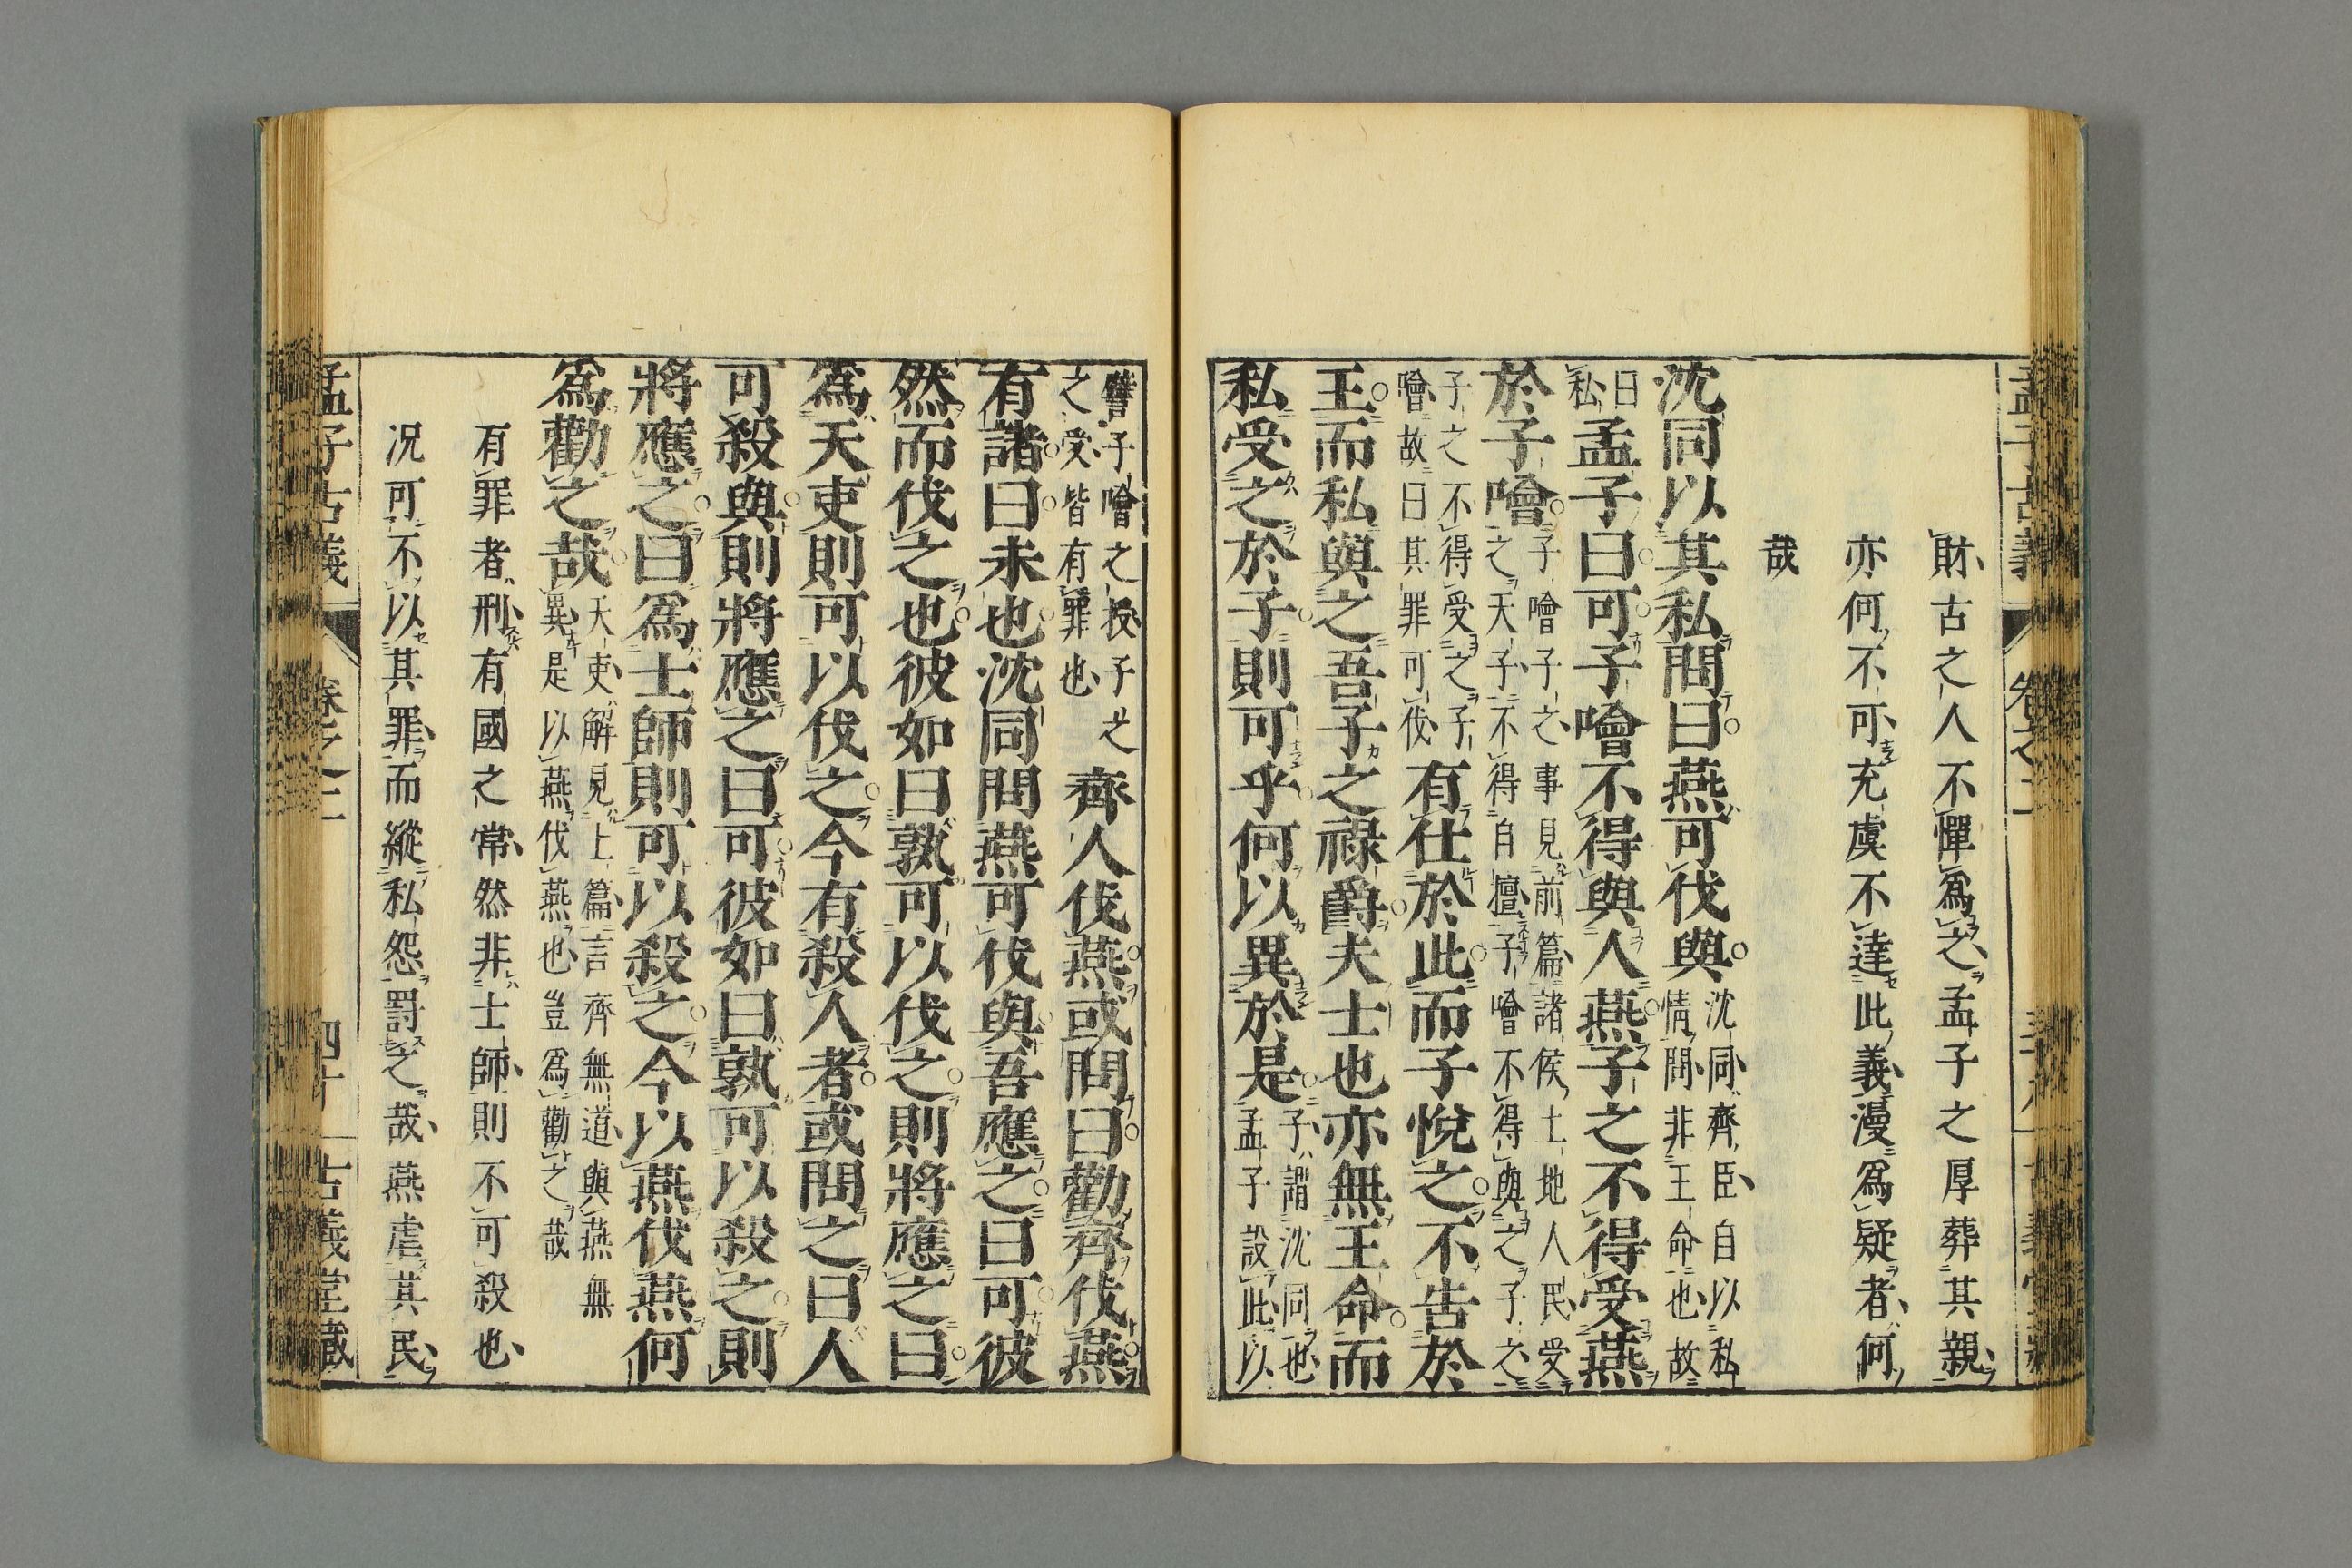 財古之人不憚爲之孟子之厚葬其親
亦何不可充虞不達此義漫爲疑者何
哉
沈同以其私問曰燕可伐與沈同齊臣自以私情問非王命也故
曰私孟子曰可子噲不得與人燕子之不得受燕
於子噲子噲子之事見前篇諸侯土地人民受之天子不得自擅子噲不得與之子之
子之不得受之子噲故曰其罪可伐有仕於此而子悅之不告於
王而私與之吾子之祿爵夫士也亦無王命而
私受之於子則可乎何以異於是子謂沈同也孟子設此以
譬子噲之授子之之受皆有罪也齊人伐燕或問曰勸齊伐燕
有諸曰未也沈同問燕可伐與吾應之曰可彼
然而伐之也彼如曰孰可以伐之則將應之曰
爲天吏則可以伐之今有殺人者或問之曰人
可殺與則將應之曰可彼如曰孰可以殺之則
將應之曰爲士師則可以殺之今以燕伐燕何
爲勸之哉天吏解見上篇言齊無道與燕無異是以燕伐燕也豈爲勸之哉
有罪者刑有國之常然非士師則不可殺也
况可不以其罪而縱私怨罰之哉燕虐其民
孟子古義 卷之二 四十 古義堂藏